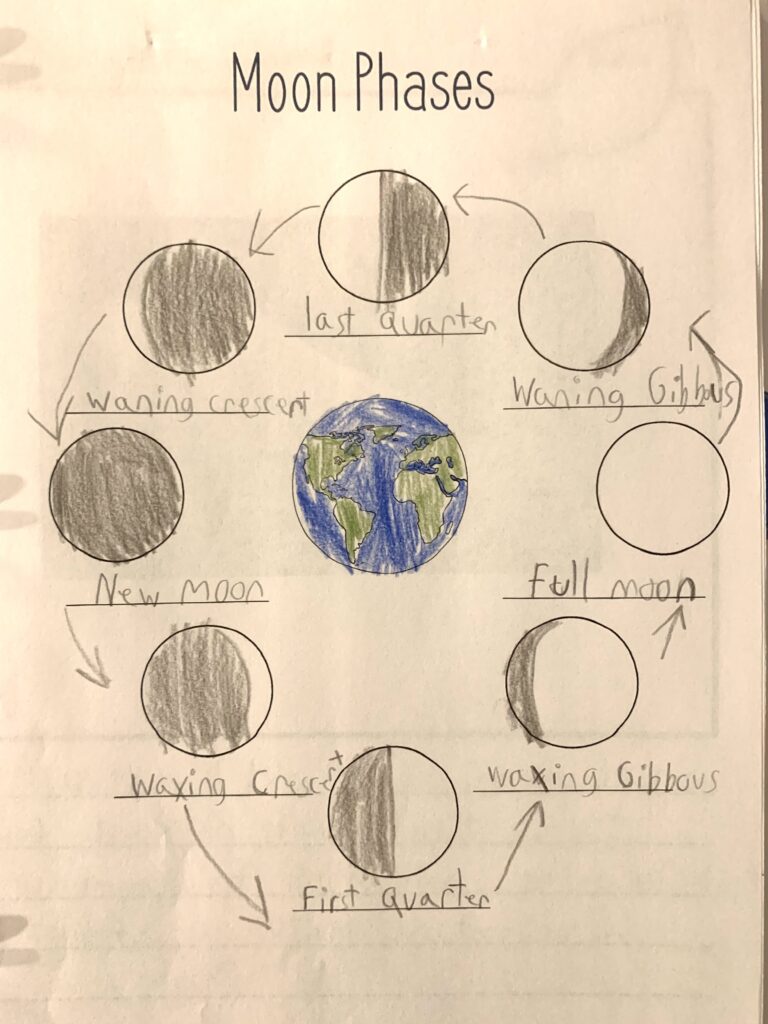 Moon Phases
last quarter
Waning Gibbous
Waning crescent
Full moon
New moon
Waxing Crescent
Waxing Gibbous
First quarter